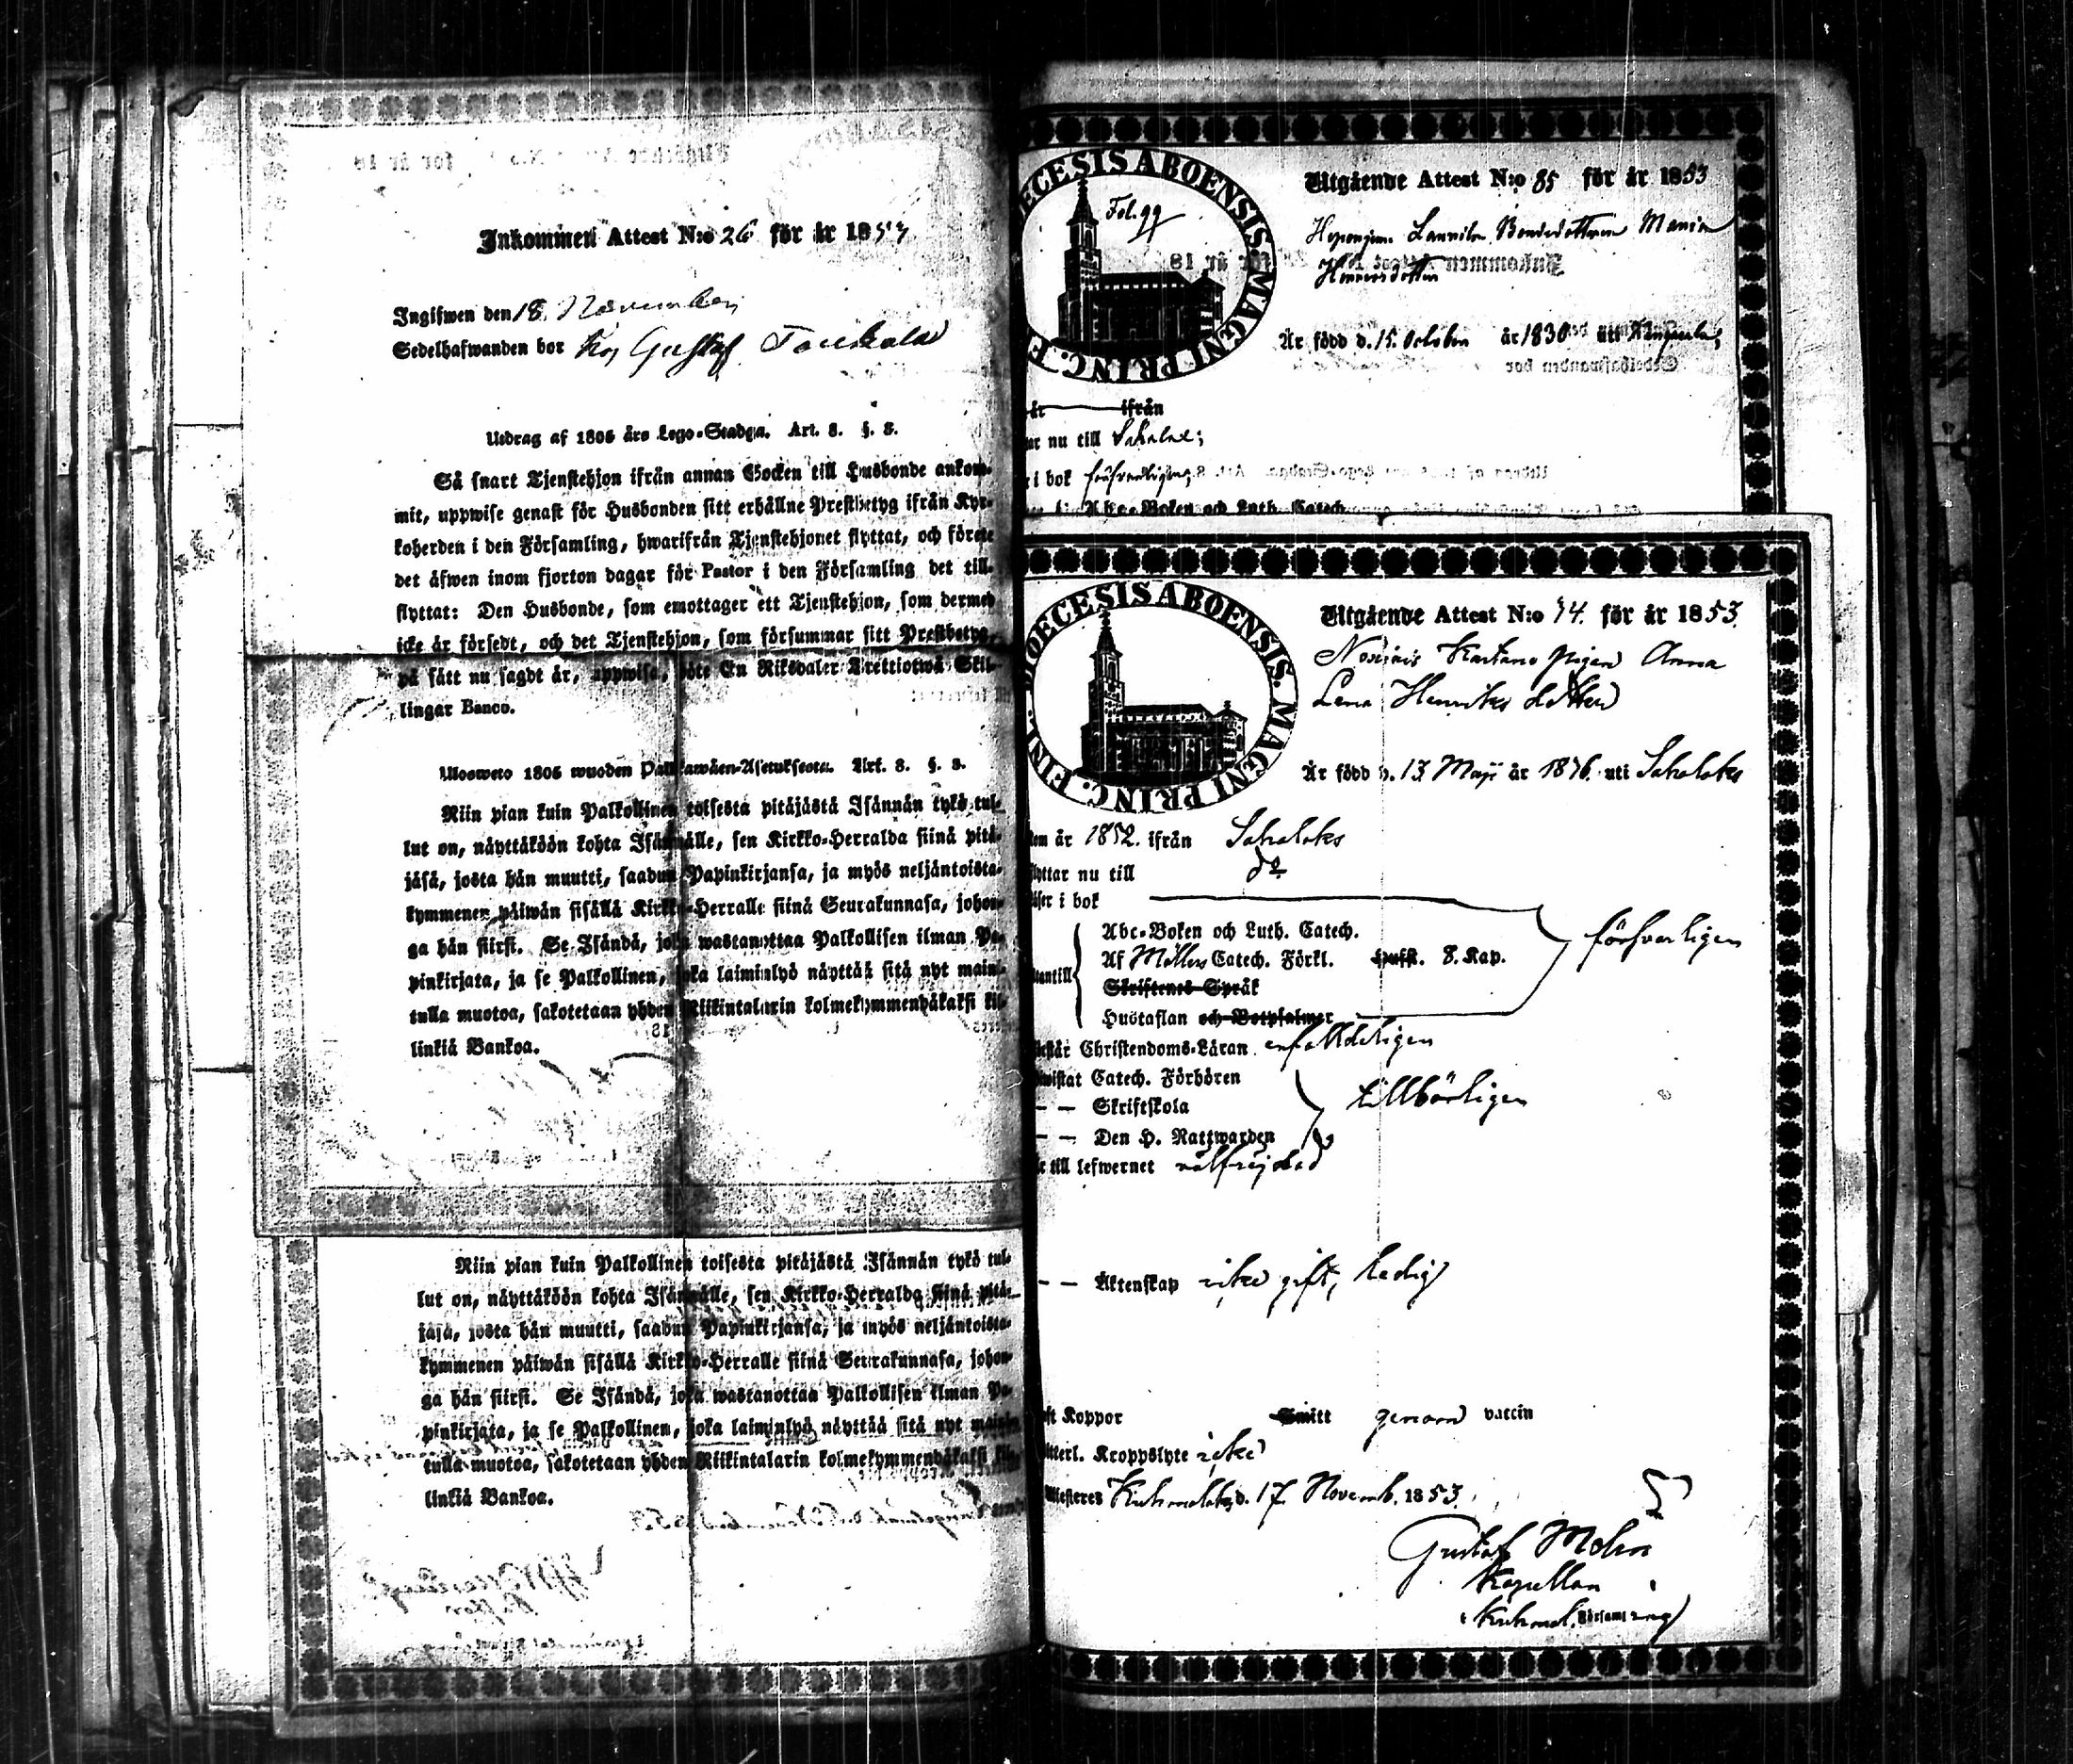 Inkommen Attest N:o 26 för år 1853
Ingifwen den 18 November
Sedelhafwanden bor Gustaf
Utdrag af 1805 års Lego-Stadga. Art. 8. §. 8.
Så snart Tjenstehjon ifrån annan Socken till Husbonde ankom-
mit, uppwise genast för Husbonden sitt erhållne Prestbetyg ifrån Kyr-
koherden i den Församling, hwarifrån Tjenstehjonet flyttat, och förete
det äfwen inom fjorton dagar för Pastor i den Församling det till-
flyttat: Den Husbonde, som emottager ett Tjenstehjon, som dermed
icke är försedt, och det Tjenstehjon, som försummar sitt Prestbetyg,
på sätt nu sagdt är, uppwisa, böte En Riksdaler Trettiotwå Skil-
lingar Banco.
Ulosweto 1805 wuoden Palkkawäen-Asetuksesta. Art. 8. §. 8.
Niin pian kuin Palkollinen toisesta pitäjästä Isännän tykö tul-
lut on, näyttäköön kohta Isännälle, sen Kirkko-Herralda siinä pitä-
jäsä, josta hän muutti, saadun Papinkirjansa, ja myös neljäntoista-
kymmenen päiwän sisällä Kirkko-Herralle siinä Seurakunnasa, johon-
ga hän siirsi. Se Isändä, joka wastanottaa Palkollisen ilman Pa-
pinkirjata, ja se Palkollinen, joka laiminlyö näyttää sitä nyt maini-
tulla muotoa, sakotetaan yhden Riikintalarin kolmekymmendäkaksi kil-
linkiä Bankoa.
Niin pian kuin Palkollinen toisesta pitäjästä Isännän tykö tul-
lut on, näyttäköön kohta Isännälle, sen Kirkko-Herralda siinä pitä-
jäsä, josta hän muutti, saadun Papinkirjansa, ja myös neljäntoista-
kymmenen päiwän sisällä Kirkko-Herralle siinä Seurakunnasa, johon-
ga hän siirsi. Se Isändä, joka wastanottaa Palkollisen ilman Pa-
pinkirjata, ja se Palkollinen, joka laiminlyö näyttää sitä nyt maini-
tulla muotoa, sakotetaan yhden Riikintalarin kolmekymmendäkaksi kil-
linkiä Bankoa.
DIOECESIS ABOENSIS. MAGNI PRINC. F
Fol. 99
Utgående Attest N:o 85 för år 1853
Lannila Bondedottren Maria
Henriksdotter
Är född d. 15 October år 1830 uti Kangasala;
år ifrån
ar nu till Sahalax;
r i bok försvarligen;
Abc-Boken och Luth. Catech.
DIOECESIS ABOENSIS. MAGNI PRINC. FINL.
Utgående Attest N:o 14. för år 1853.
Kartano pigan Anna
Lena Henriksdotter
Är född d. 13 Maji år uti Sahalaks
om år 1852. ifrån Sahalaks
flyttar nu till do
läser i bok
Abc-Boken och Luth. Catech.
Af Möllers Catech. Förkl. Hufst. 8. Kap.
försvarligen
utantill
Skriftenes Språk
Hustaflan och Botpsalmer
Christendoms-Läran enfalldeligen
wistat Catech. Förhören
— — Skriftskola
tillbörligen
— — Den H. Nattwarden
till lefwernet välfrejdad
— — Äktenskap icke gift, ledig
ft Koppor Smitt genom vaccin
tterl. Kroppslyte icke
Kuhmalaks d. 17 Novemb. 1853.
Gustaf Molin
Kapellan
i Kuhmal. Församling